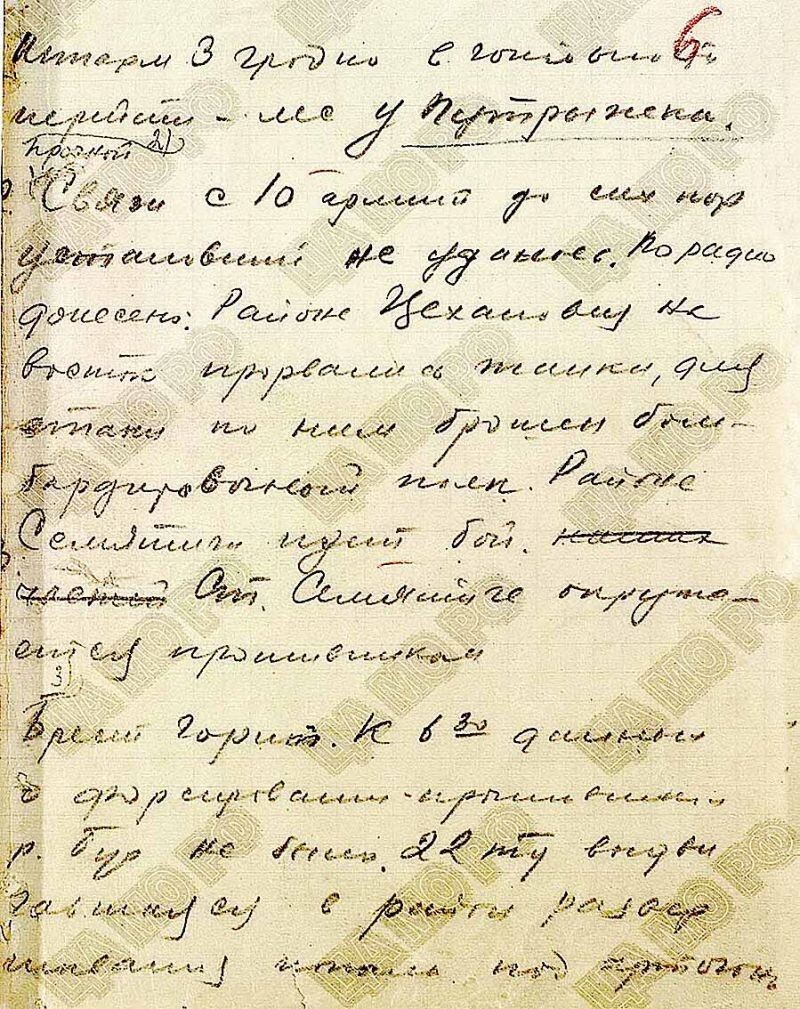 6
Штарм 3 Гродно в готовности
перейти – лес у Путрышки.
Прочной 2)
Связи с 10 армией до сих пор
установить не удалось. По радио
донесено: Районе Цехановця на
восток прорвались танки, для
атаки по ним брошен бом-
бардировочный полк. Районе
Семятичи идет бой. наших
частей Ст. Семятиче окружа-
ется противником
3)
Брест горит. К 6 30 данных
о форсировании противником
р. Буг не было. 22 тд выдви
гавшаяся в район развер
тывания попала под
ЦАМО РФ